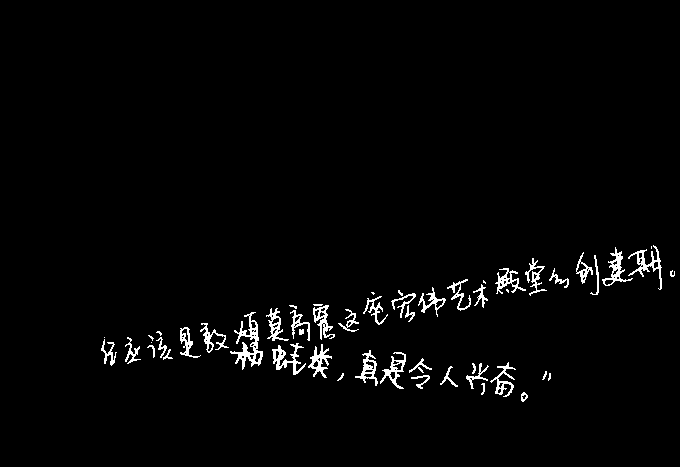 应该是敦煌莫高窟这座宏伟艺术殿堂的创建期。
蛙类，真是令人兴奋。”